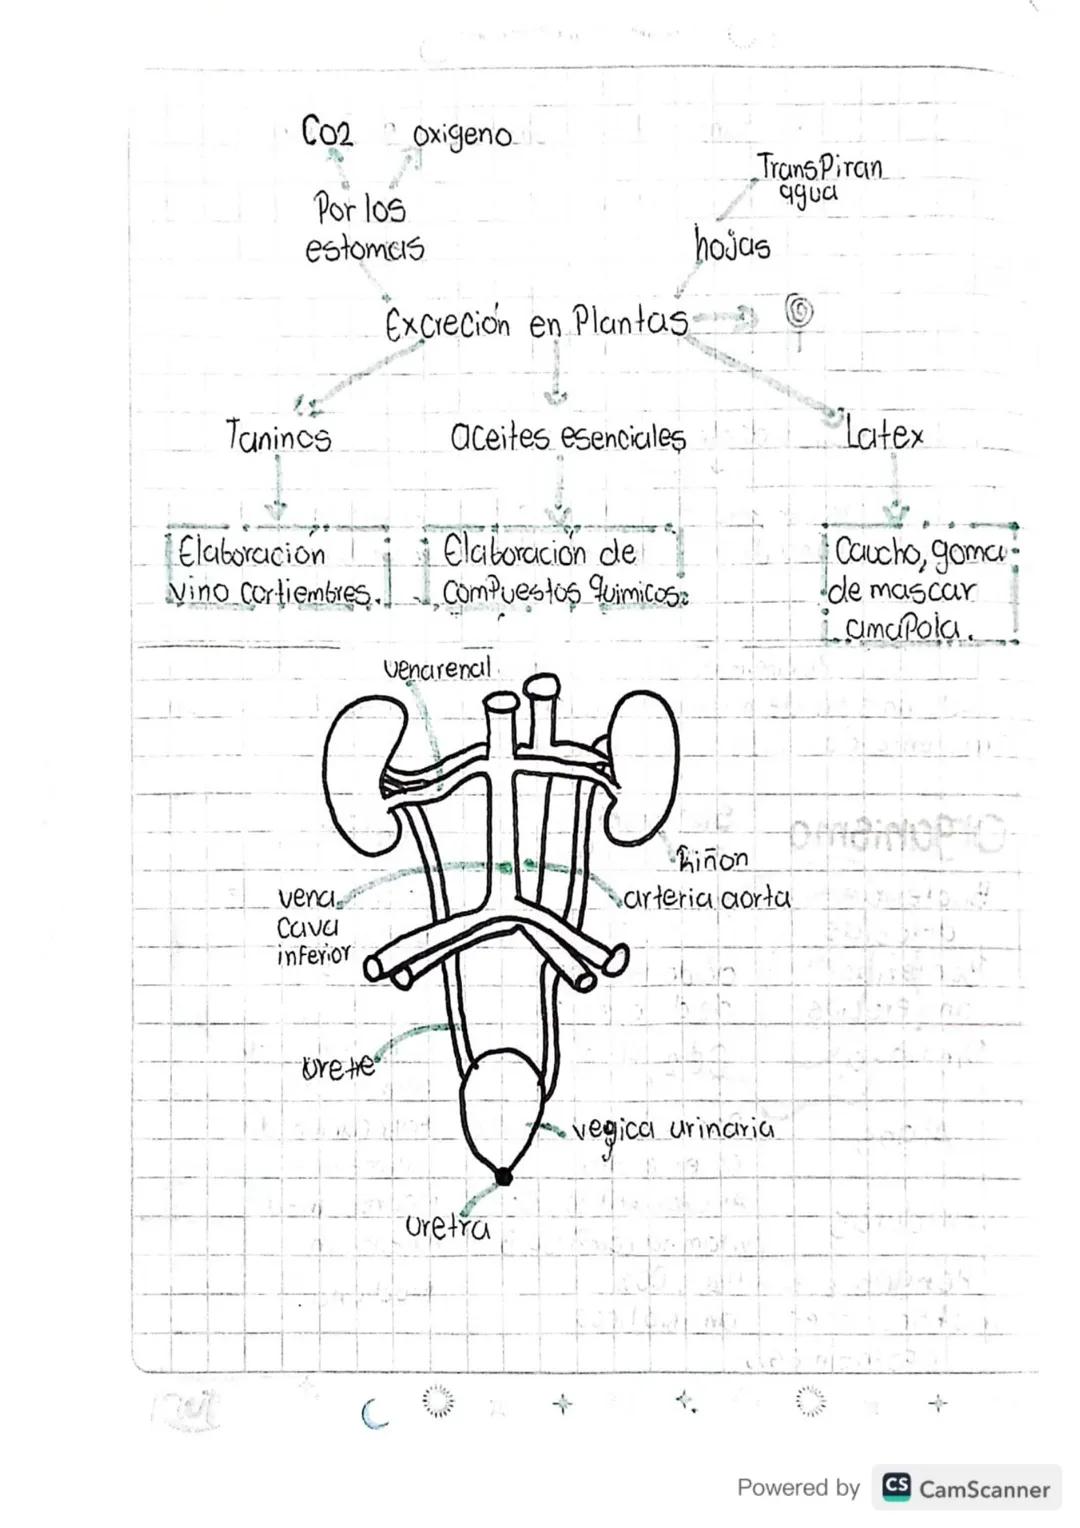 Co2 oxigeno
Transpiran
agua
Por los
estomas
hojas
Excreción en Plantas
Taninos aceites esenciales Latex
Elaboración
vino cortiembres.
Elaboración de
compuestos quimicos.
Caucho, goma
de mascar
amapola.
vena renal
Riñon
vena
cava
inferior
arteria aorta
vegica urinaria
uretra
Powered by CS CamScanner